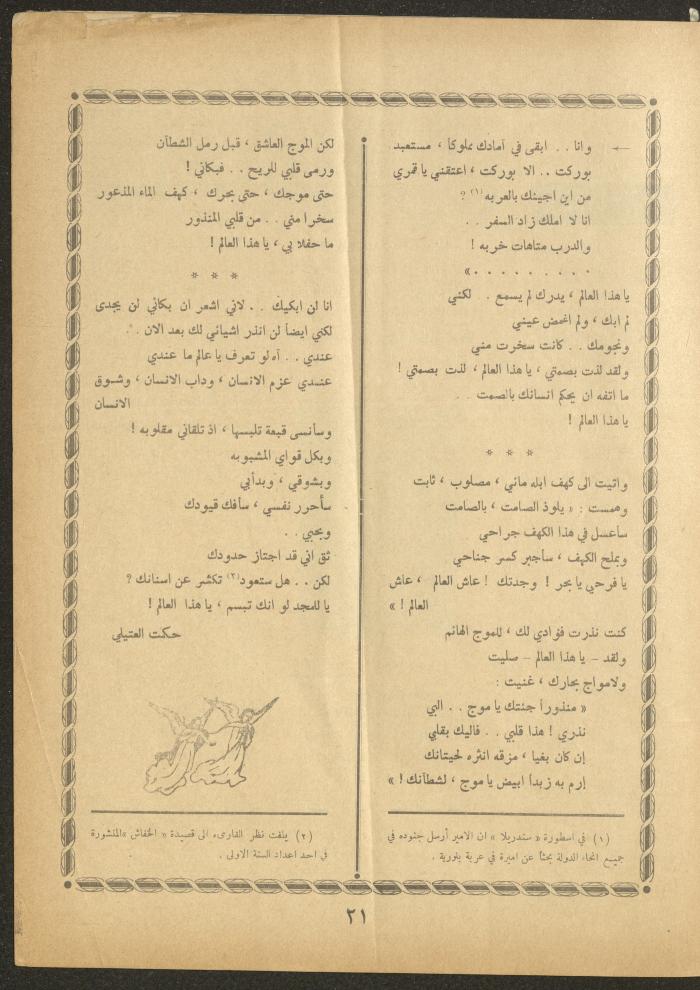 وانا . . ابقى في آمادك مملوكاً ، مستعبد
بوركت . . الا بوركت ، اعتقني يا قمري
من اين اجيئك بالعربه (١) ؟
انا لا املك زاد السفر . .
والدرب متاهات خربه !
. . . . . . . . . »
يا هذا العالم ، يدرك لم يسمع . . لكني
لم ابك ، ولم اغمض عيني
ونجومك . . كانت سخرت مني
ولقد لذت بصمتي ، يا هذا العالم ، لذت بصمتي !
ما اتفه ان يحكم انسانك بالصمت . .
يا هذا العالم !
* * *
واتيت الى كهف ابله ماني ، مصلوب ، ثابت
وهمست : « يلوذ الصامت ، بالصامت
سأغسل في هذا الكهف جراحي
وبملح الكهف ، سأجبر كسر جناحي
يا فرحي يا بحر ! وجدتك ! عاش العالم ، عاش
العالم ! »
كنت نذرت فؤادي لك ، للموج الهائم
ولقد – يا هذا العالم – صليت
ولامواج بحارك ، غنيت :
« منذوراً جئتك يا موج . . البي
نذري ! هذا قلبي . . فاليك بقلبي
إن كان بغيا ، مزقه انثره لحيتانك
إرم به زبداً ابيض يا موج ، لشطآنك ! »
(١) في اسطورة « سندريلا » ان الامير أرسل جنوده في
جميع انحاء الدولة بحثاً عن اميرة في عربة بلورية .
لكن الموج العاشق ، قبل رمل الشطآن
ورمى قلبي للريح . . فبكاني !
حتى موجك ، حتى بحرك ، كهف الماء المذعور
سخرا مني . . من قلبي المنذور
ما حفلا بي ، يا هذا العالم !
* * *
انا لن ابكيك . . لاني اشعر ان بكائي لن يجدى
لكني ايضاً لن انذر اشيائي لك بعد الان . .
عندي . . آه لو تعرف يا عالم ما عندي
عندي عزم الانسان ، وداب الانسان ، وشوق
الانسان
وسأنسى قبعة تلبسها ، اذ تلقاني مقلوبه !
وبكل قواي المشبوبه
وبشوقي ، وبدأبي
سأحرر نفسي ، سأفك قيودك
وبحبي . .
ثق اني قد اجتاز حدودك
لكن . . هل ستعود (٢) تكشر عن اسنانك ؟
يا للمجد لو انك تبسم ، يا هذا العالم !
حكت العتيلي
(٢) يلفت نظر القارىء الى قصيدة « الخفاش » المنشورة
في احد اعداد السنة الاولى .
٢١